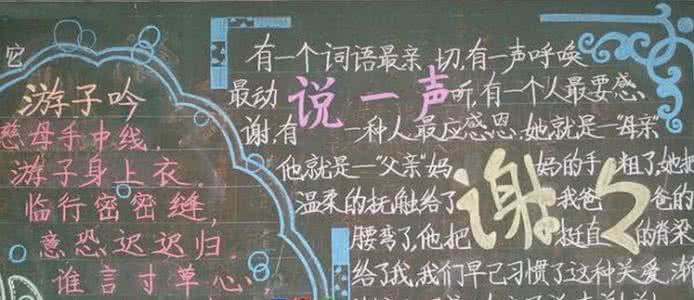 它
游子吟
慈母手中线,
游子身上衣。
临行密密缝,
意恐迟迟归
谁言寸草心
有一个词语最亲切,有一声呼唤
最动听,有一个人最要感
说一声
谢,有一种人最应感恩,她就是—“母亲”
他就是—“父亲”妈妈的手粗了,她把
温柔的抚触给了我爸爸的
谢々
腰弯了,他把挺直的脊梁
给了我,我们早已习惯了这种关爱,渐